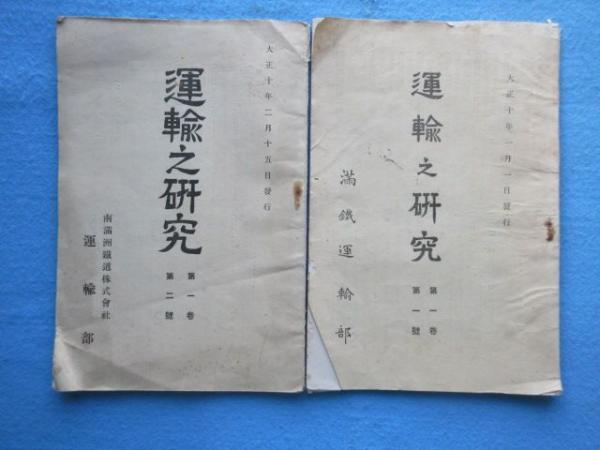 大正十年一月一日發行
運輸之研究
第一卷
第一號
滿鐵運輸部
大正十年二月十五日發行
運輸之研究
第一卷
第二號
南滿洲鐵道株式會社
運輸部